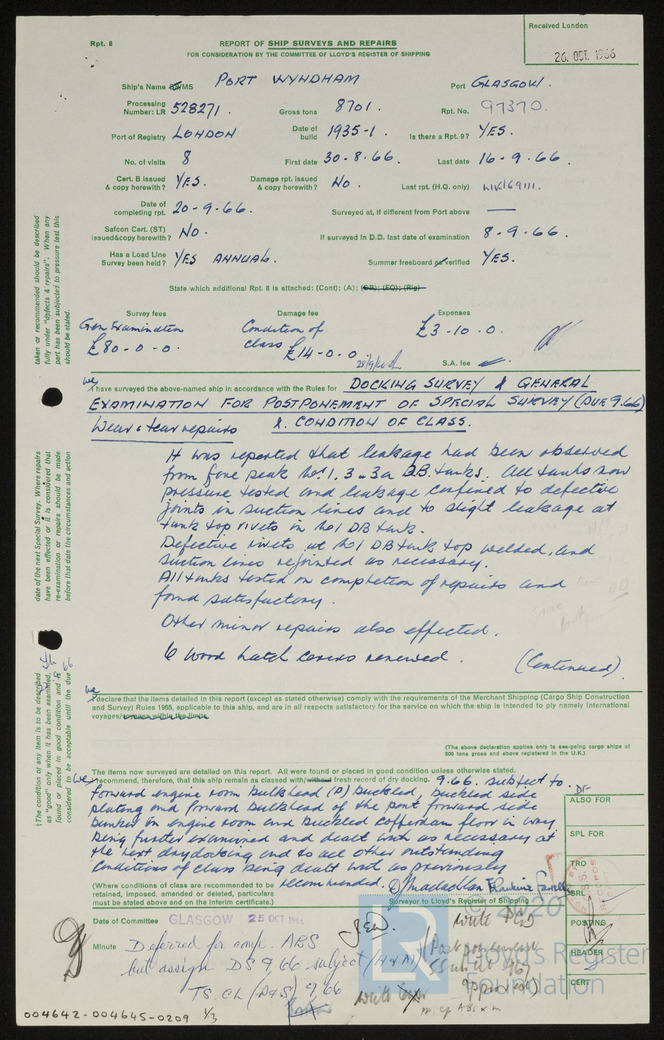 Rpt. 8
REPORT OF SHIP SURVEYS AND REPAIRS
FOR CONSIDERATION BY THE COMMITTEE OF LLOYD'S REGISTER OF SHIPPING
Received London
26. OCT. 1966
Ship's Name MS PORT WYNDHAM Port GLASGOW.
Processing Number: LR 528271. Gross tons 8701. Rpt. No. 97370.
Port of Registry LONDON Date of build 1935-1. Is there a Rpt. 9? YES.
No. of visits 8 First date 30-8-66. Last date 16-9-66.
Cert. B issued & copy herewith? YES. Damage rpt. issued & copy herewith? NO. Last rpt. (H.Q. only)
Date of completing rpt. 20-9-66. Surveyed at, if different from Port above —
Safcon Cert. (ST) issued & copy herewith? NO. If surveyed in D.D. last date of examination 8-9-66.
Has a Load Line Survey been held? YES ANNUAL. Summer freeboard as verified YES.
State which additional Rpt. 8 is attached: (Cont); (A); (DR); (EQ); (Rig)
Survey fees Damage fee Expenses
Gen Examination Condition of £3-10-0.
£80-0-0. class £14-0-0
S.A. fee
We have surveyed the above-named ship in accordance with the Rules for DOCKING SURVEY & GENERAL
EXAMINATION FOR POSTPONEMENT OF SPECIAL SURVEY (DUE 9.66)
Wear & tear repairs & CONDITION OF CLASS.
It was reported that leakage had been observed
from fore peak No. 1, 3 & 3a D.B. tanks. All tanks now
pressure tested and leakage confined to defective
joints in suction lines and to slight leakage at
tank top rivets in No 1 DB tank.
Defective rivets at No 1 DB tank top welded, and
suction lines rejointed as necessary.
All tanks tested on completion of repairs and
found satisfactory.
Other minor repairs also effected.
6 wood hatch covers renewed. (Continued)
We declare that the items detailed in this report (except as stated otherwise) comply with the requirements of the Merchant Shipping (Cargo Ship Construction
and Survey) Rules 1965, applicable to this ship, and are in all respects satisfactory for the service on which the ship is intended to ply namely International
voyages/voyages within the limits
(The above declaration applies only to sea-going cargo ships of
500 tons gross and above registered in the U.K.)
The items now surveyed are detailed on this report. All were found or placed in good condition unless otherwise stated.
We recommend, therefore, that this ship remain as classed with/without fresh record of dry docking. 9.66 subject to
forward engine room bulkhead (P) buckled, buckled side
plating and forward bulkhead of the port forward side
bunker in engine room and buckled cofferdam floor in way
being further examined and dealt with as necessary at
the next drydocking and to all other outstanding
conditions of class being dealt with as previously
recommended.
(Where conditions of class are recommended to be
retained, imposed, amended or deleted, particulars
must be stated above and on the interim certificate.)
Surveyor to Lloyd's Register of Shipping
ALSO FOR
SPL FOR
TRO
SRL
POSTING
HEADER
CERT
Date of Committee GLASGOW 25 OCT 1966
Minute Deferred for comp. ABS
but assign DS 9,66 subject (H&M)
TS. CL (A&S) 9,66
(Postponement
approved)
© 2020
LR
Lloyd's Register
Foundation
004642-004645-0209 1/3
taken or recommended should be described
fully under "defects & repairs". When any
part has been subjected to pressure test this
should be stated.
date of the next Special Survey. Where repairs
have been effected or it is considered that
re-examination or repairs should be made
before that date the circumstances and action
†The condition of any item is to be described
as "good" only when it has been examined,
found or placed in good condition and is
considered to be acceptable until the due